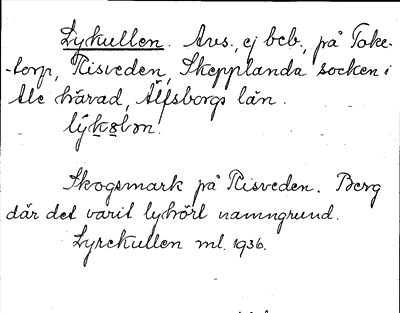 Lykullen. Avs., ej beb., på Toke-
torp, Risveden, Skepplanda socken i
Ale härad, Älfsborgs län.
Skogsmark på Risveden. Berg
där det varit lyhört namngrund.
Lyrekullen ml. 1936.